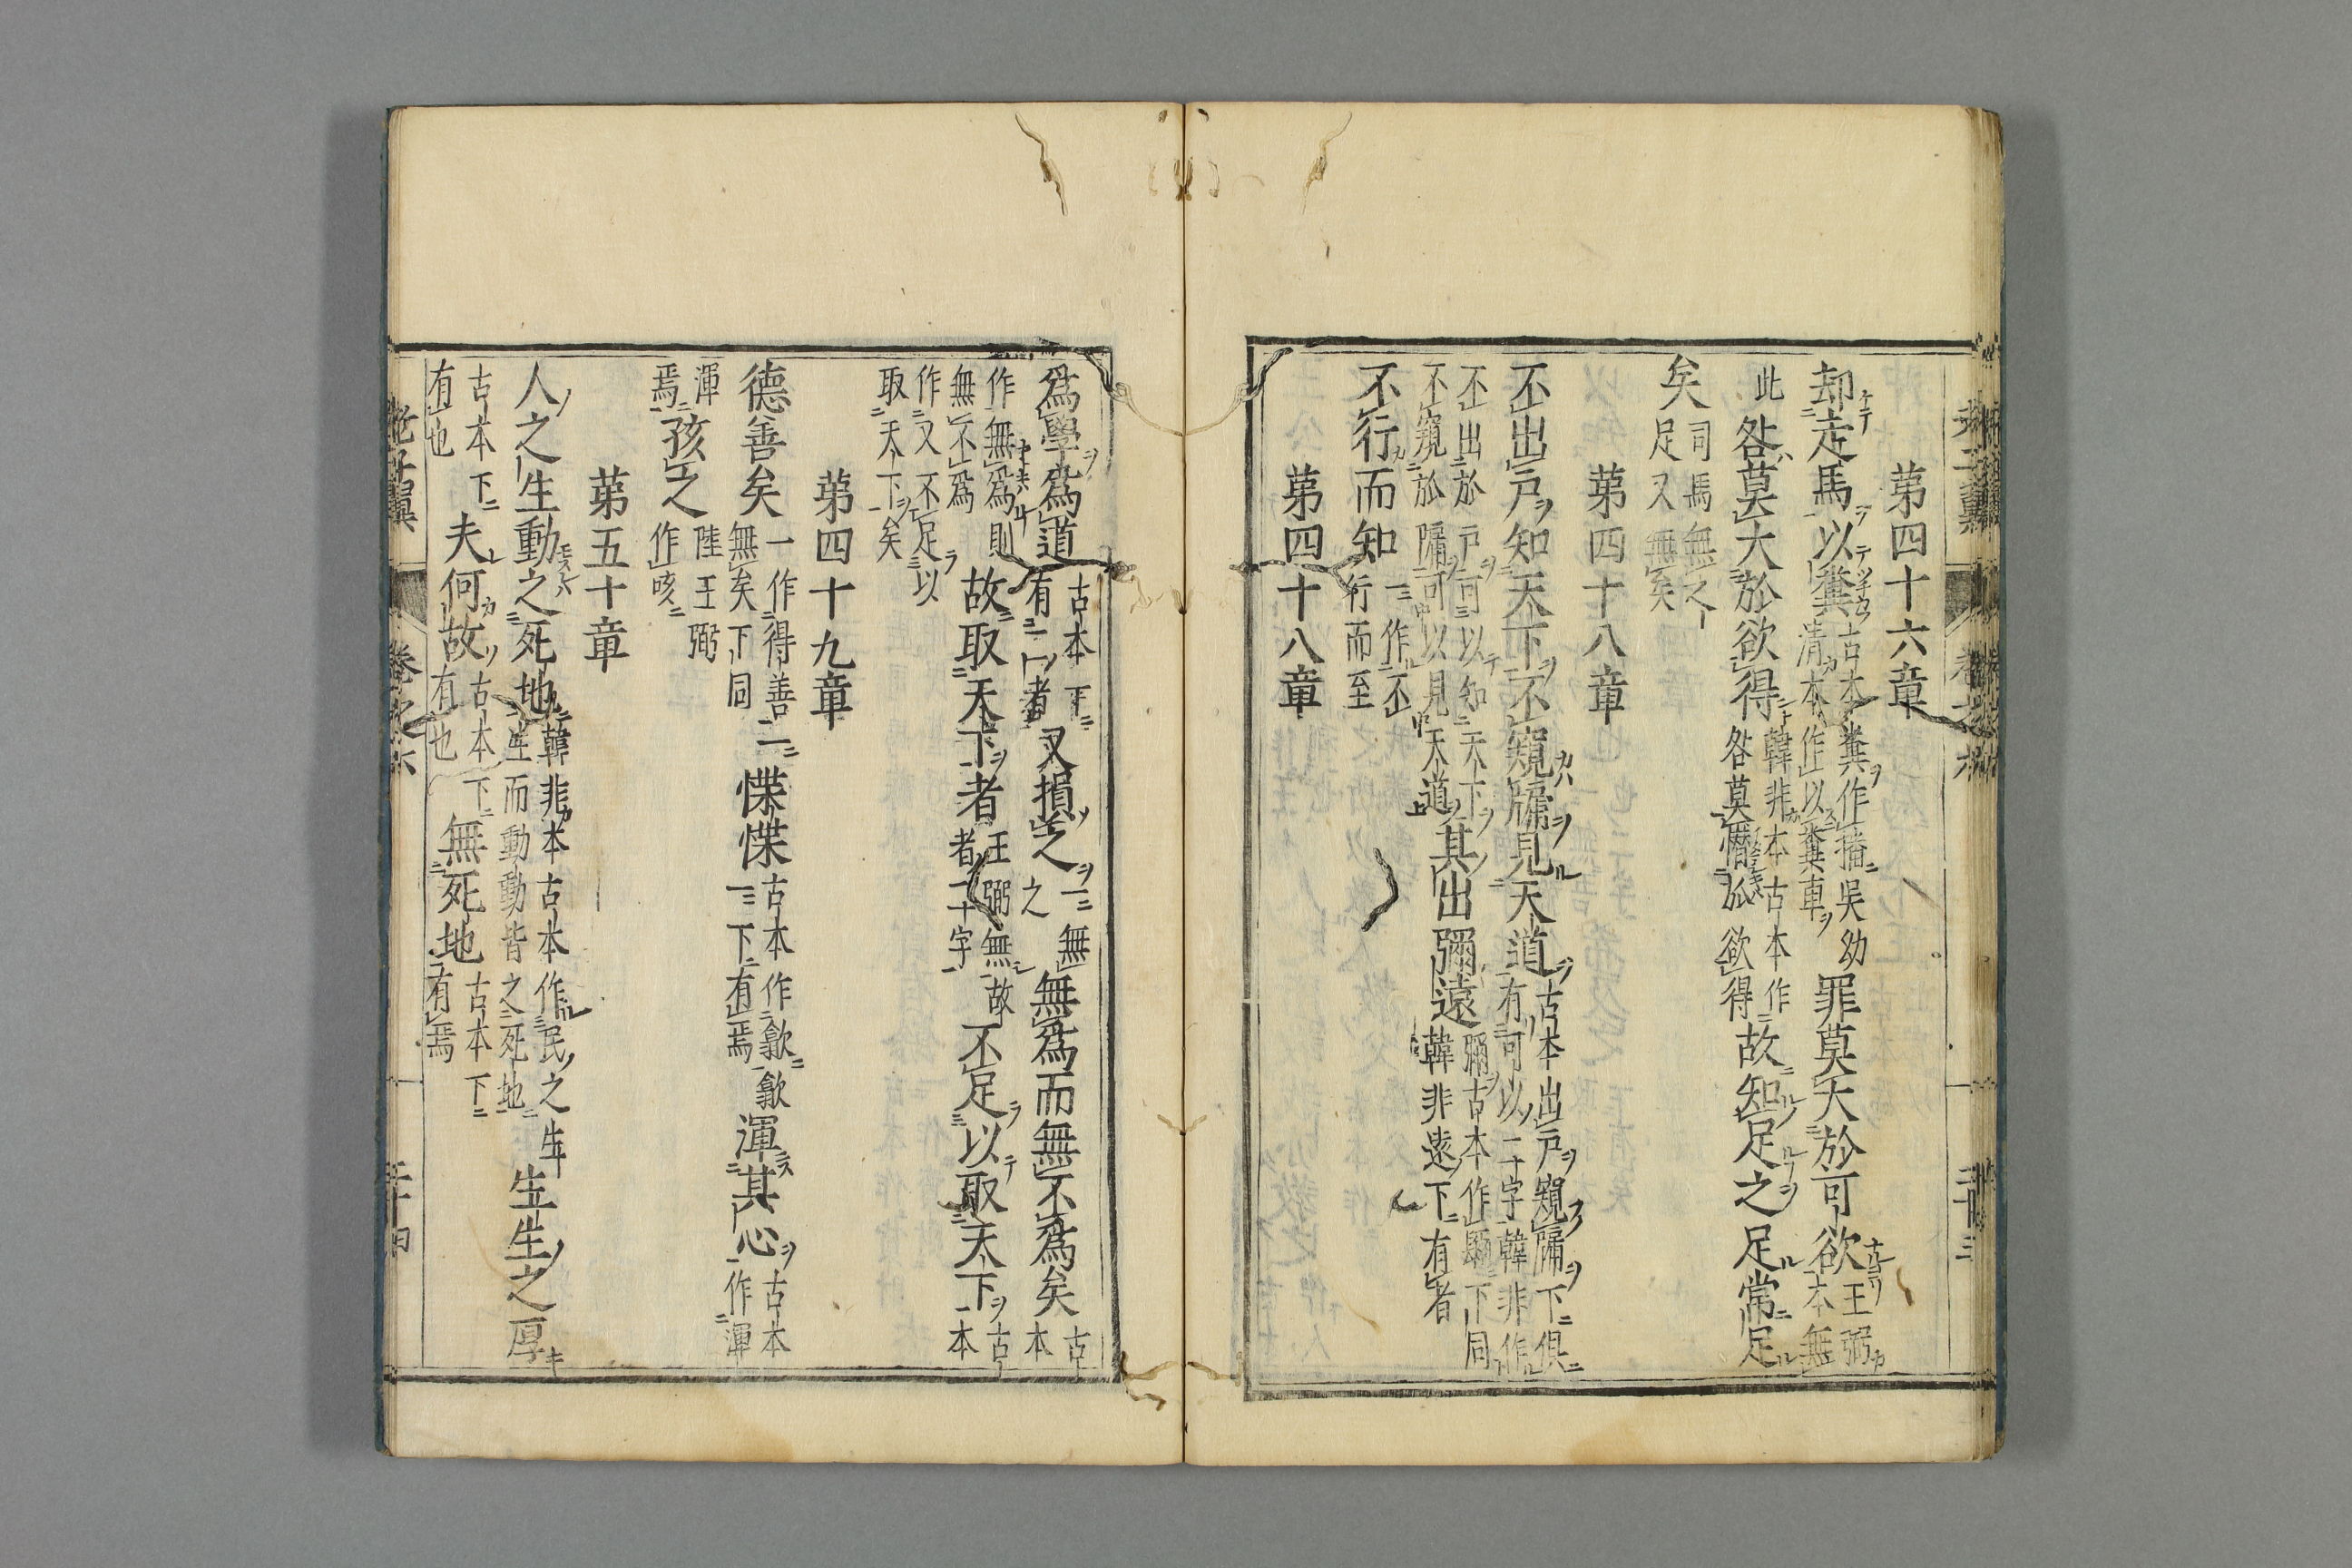 第四十六章
却走馬以糞古本糞作播吳幼清本作以糞車罪莫大於可欲王弼本無
此咎莫大於欲得韓非本古本作咎莫憯於欲得故知足之足常足
矣司馬無之足又無矣
第四十八章
不出戶知天下不窺牖見天道古本出戶窺牖下俱有可以二字韓非作
不出於戶可以知天下不窺於牖可以見天道其出彌遠彌古本作𨇤下同韓非遠下有者
不行而知一作不行而至
第四十八章
爲學爲道古本下有二者又損之之一無無爲而無不爲矣古本
作無爲則無不爲故取天下者王弼無故者二字不足以取天下古本
作又不足以取天下矣
第四十九章
德善矣一作得善無矣下同二惵惵古本作歙歙三下有焉渾其心古本作渾
渾焉孩之陸王弼作咳
第五十章
人之生動之死地韓非本古本作民之生生而動動皆之死地生生之厚
古本下有也夫何故古本下有也無死地古本下有焉
老子翼
卷之六
三十四